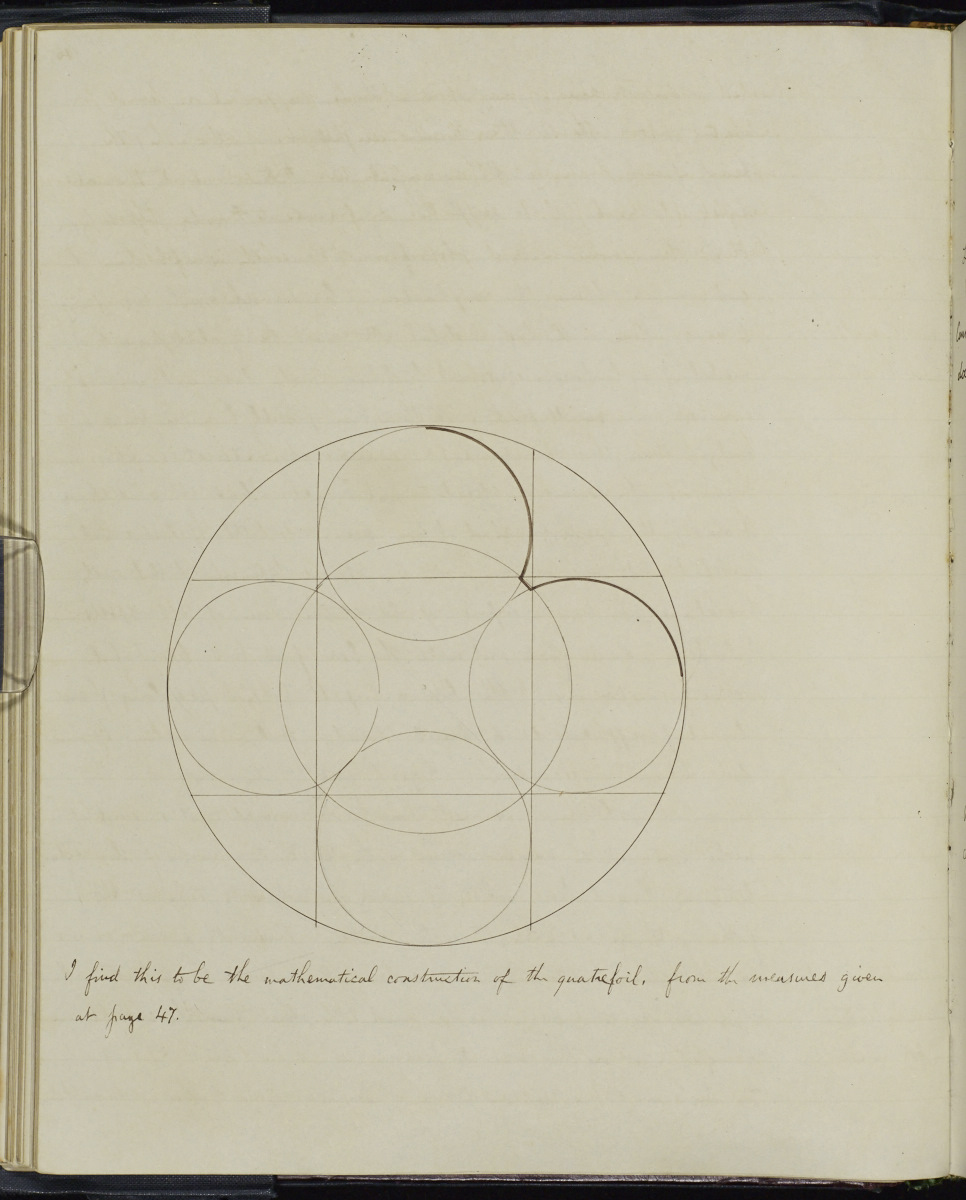 I find this to be the mathematical construction of th quatrefoil. from th measures given
at page 47.